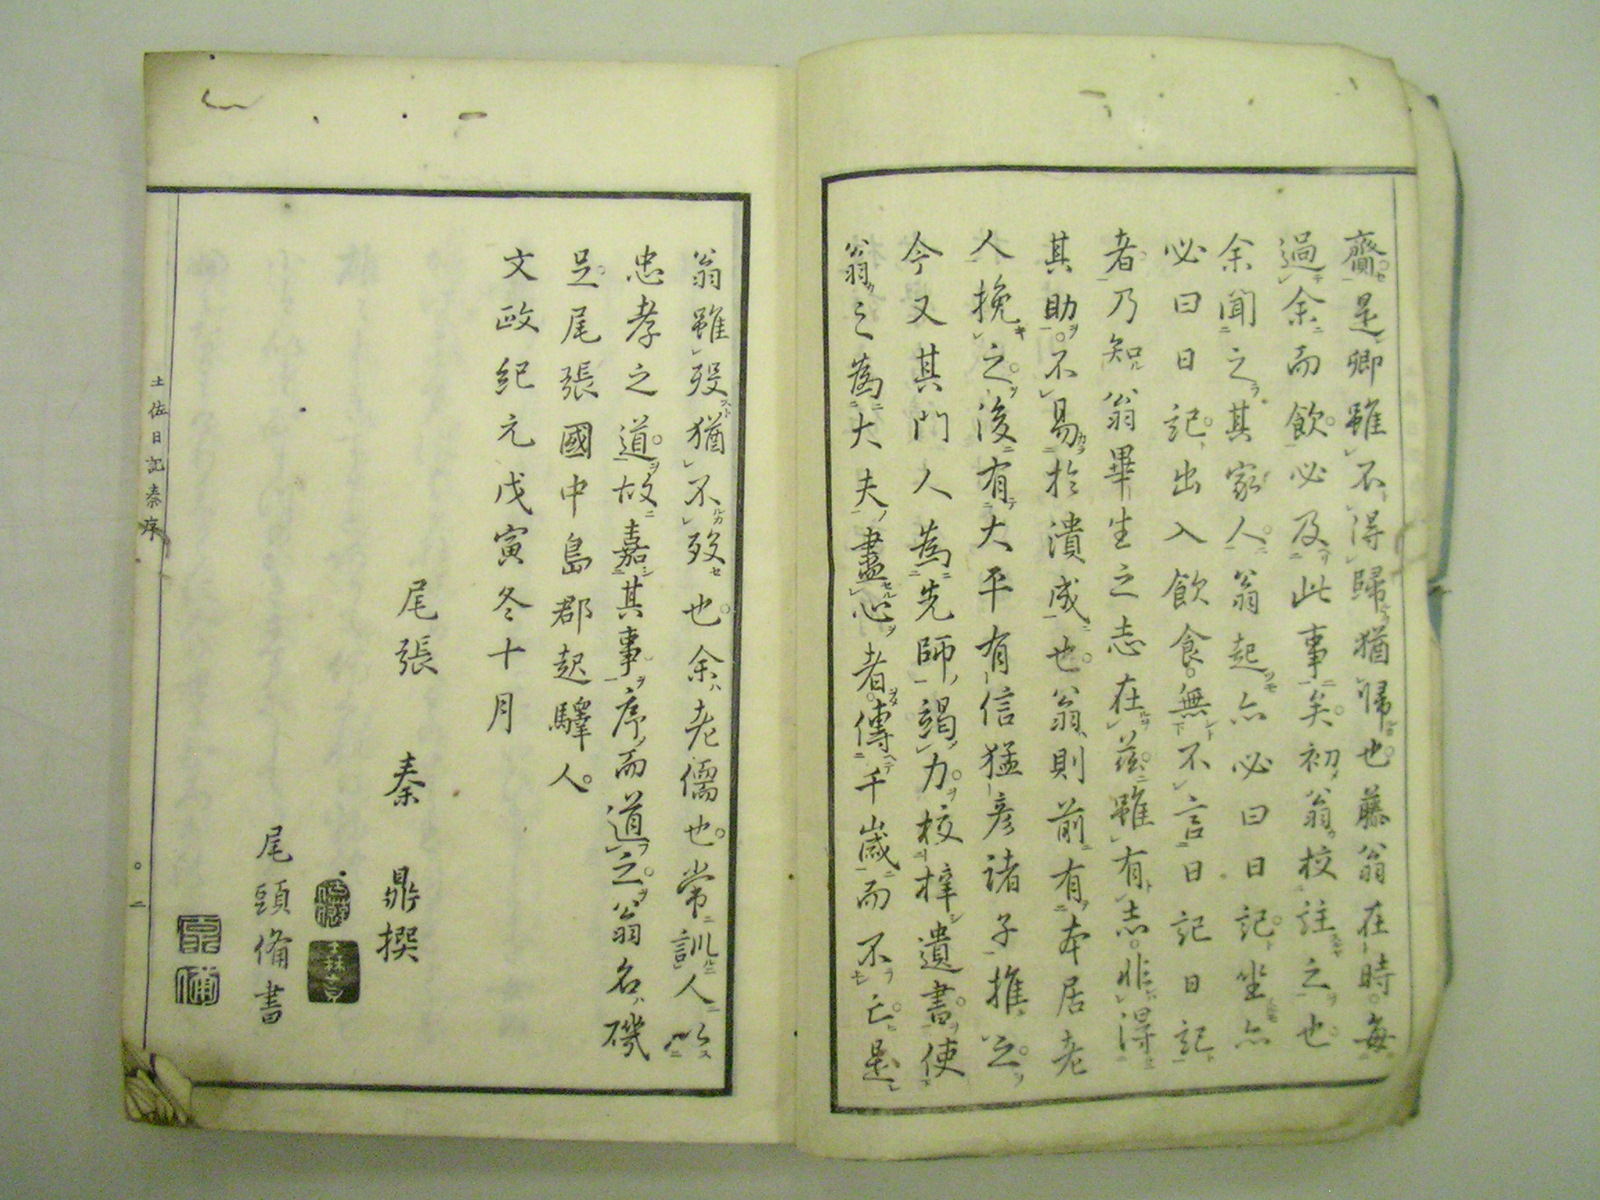 齎是卿雖不得歸猶帰也藤翁在時每
過余而飲必及此事矣初翁校註之也
余聞之其家人翁起亦必曰日記坐亦
必曰日記出入飲食無不言日記日記
者乃知翁畢生之志在茲雖有志非得
其助不易於潰成也翁則前有本居老
人挽之後有大平有信猛彦諸子推之
今又其門人為先師竭力校梓遺書使
翁之為大夫盡心者傳千歳而不亡是
翁雖歿猶不歿也余老儒也常訓人以
忠孝之道故嘉其事序而道之翁名磯
足尾張國中島郡起驛人
文政紀元戊寅冬十月
尾張 秦 鼎撰
尾頭脩書
土佐日記秦序
二